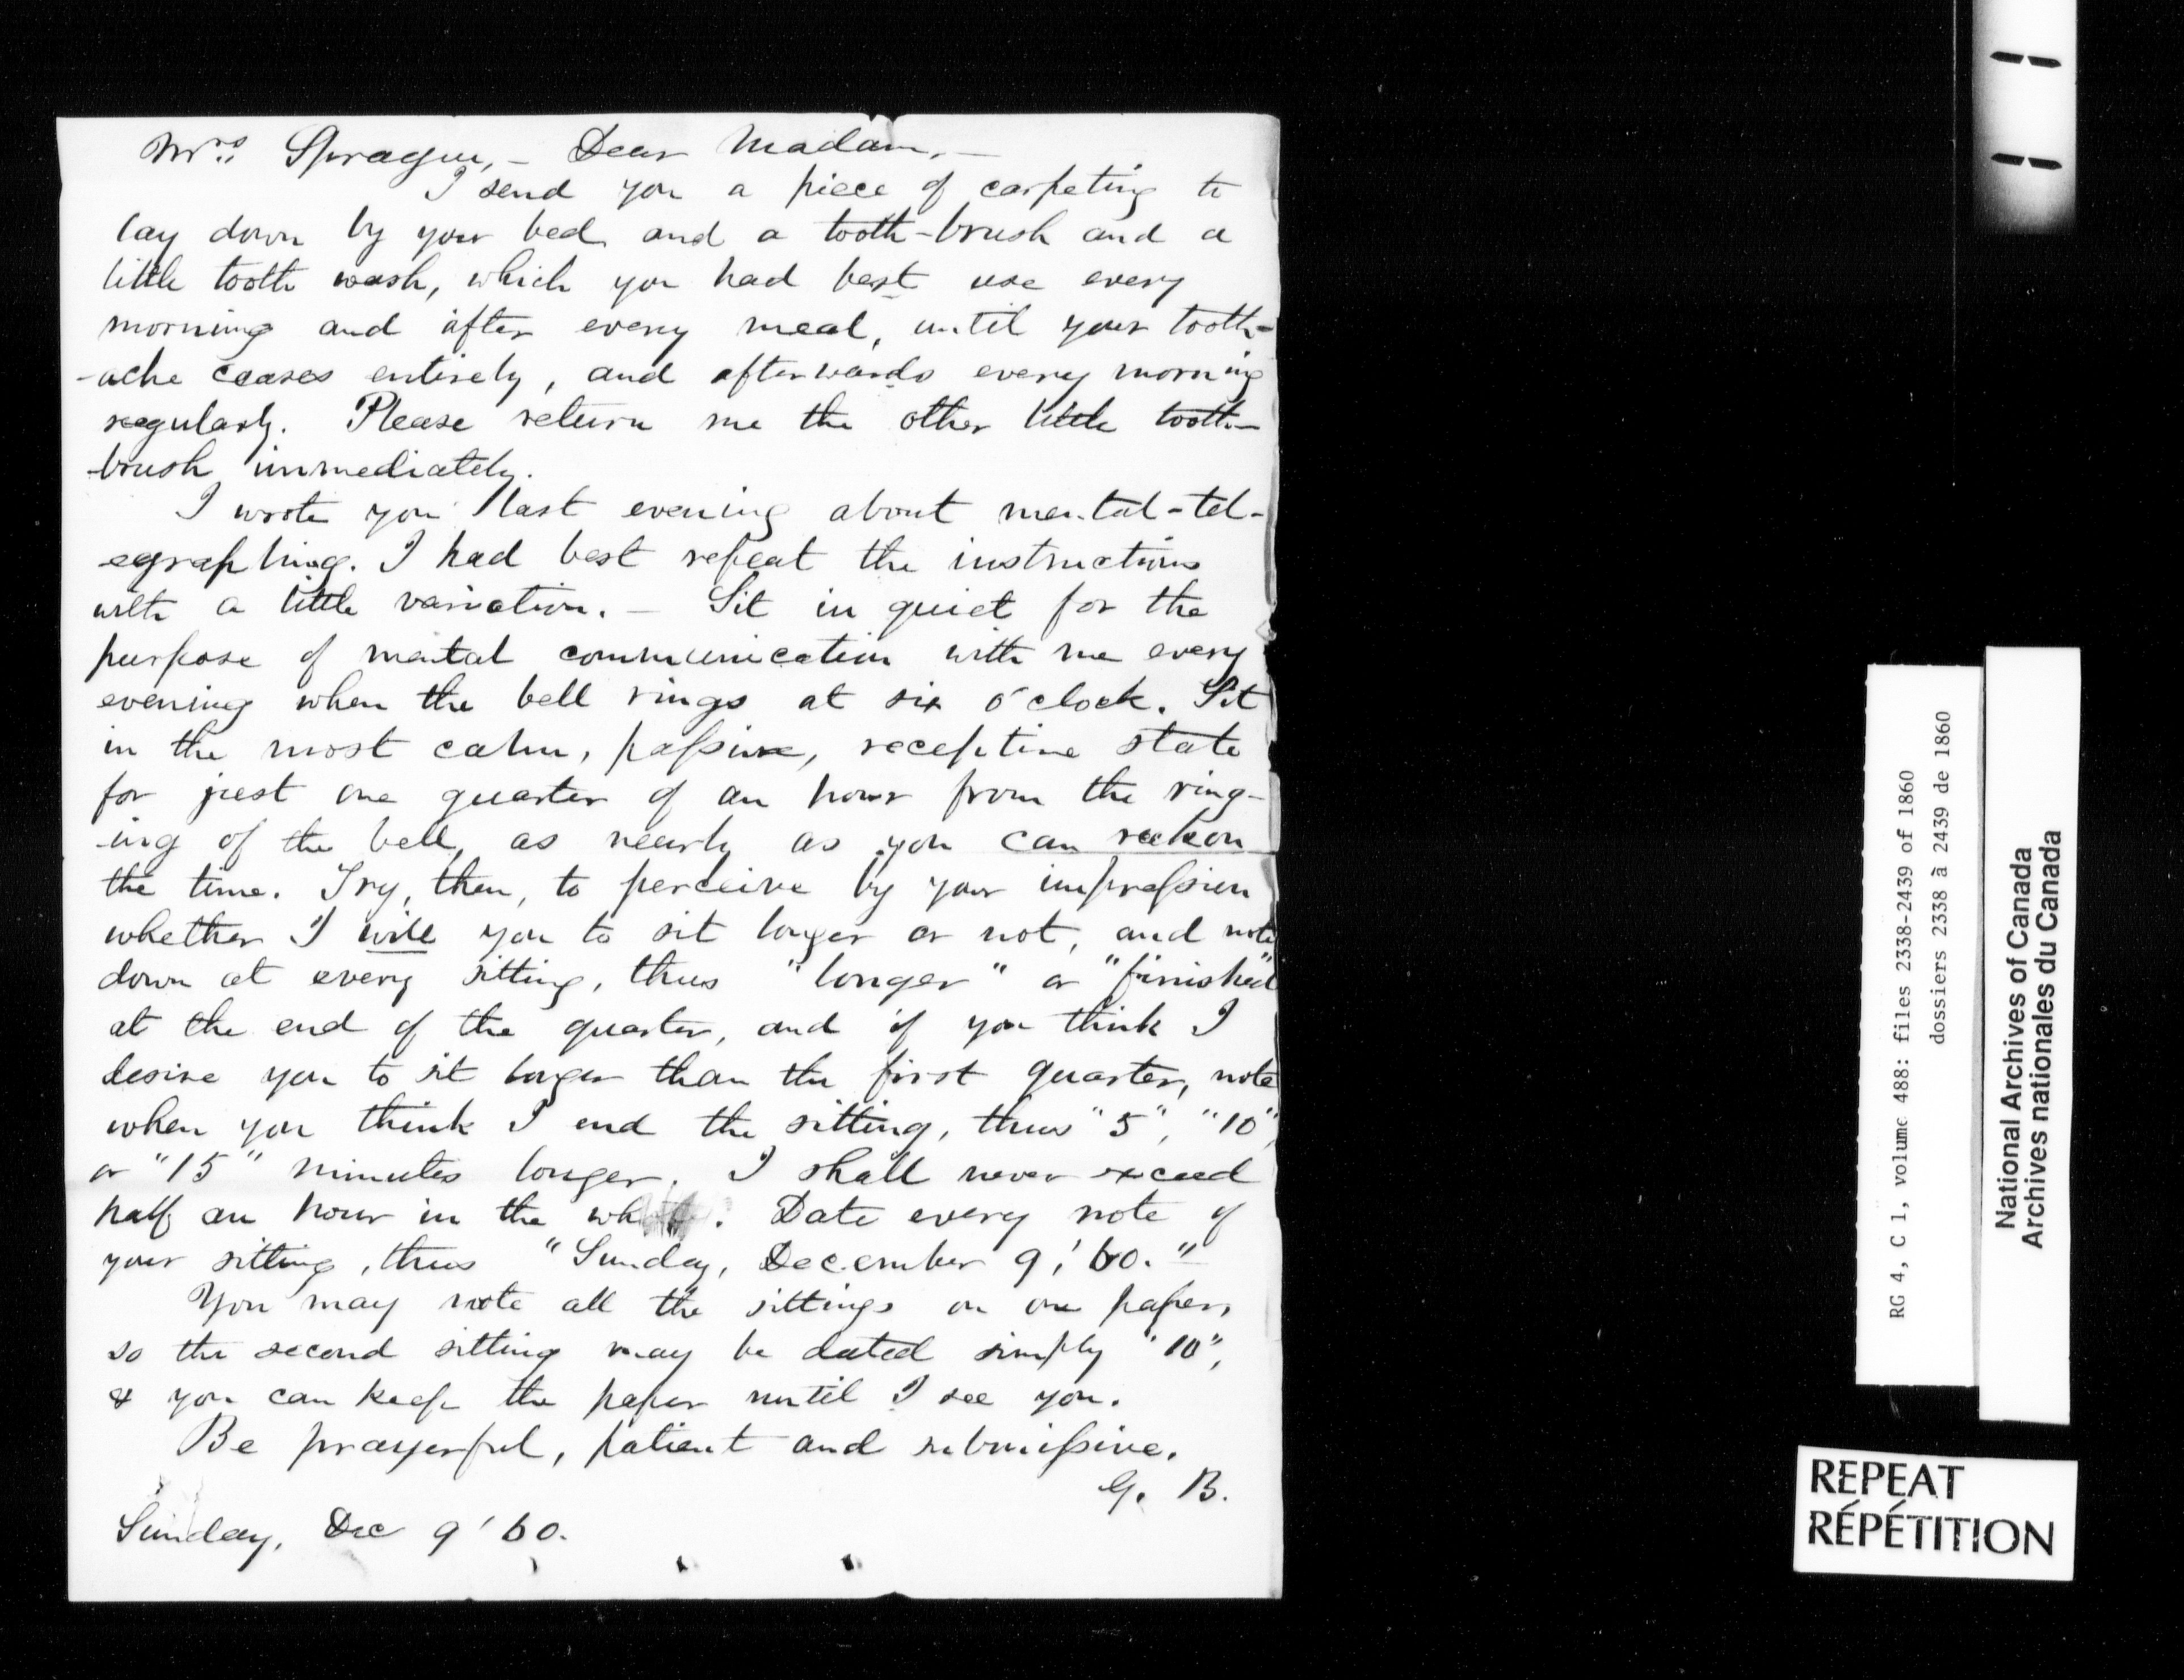 Mrs. Sprague, - Dear Madam, -
I send you a piece of carpeting to
lay down by your bed, and a tooth-brush and a
little tooth wash, which you had best use every
morning and after every meal, until your tooth-
-ache ceases entirely, and afterwards every morning
regularly. Please return me the other little tooth-
-brush immediately.
I wrote you last evening about mental-tel-
-egraphing. I had best repeat the instructions
with a little variation. - Sit in quiet for the
purpose of mental communication with me every
evening when the bell rings at six o'clock. Sit
in the most calm, passive, receptive state
for just one quarter of an hour from the ring-
-ing of the bell, as nearly as you can reckon
the time. Try, then, to perceive by your impression
whether I will you to sit longer or not, and note
down at every sitting, thus "longer" or "finished"
at the end of the quarter, and if you think I
desire you to sit longer than the first quarter, note
when you think I end the sitting, thus "5", "10",
or "15" minutes longer. I shall never exceed
half an hour in the whole. Date every note of
your sitting, thus "Sunday, December 9, '60."
You may note all the sittings on one paper,
so the second sitting may be dated simply "10",
& you can keep the paper until I see you.
Be prayerful, patient and submissive.
G. B.
Sunday, Dec 9 '60.
RG 4, C 1, volume 488: files 2338-2439 of 1860
dossiers 2338 à 2439 de 1860
National Archives of Canada
Archives nationales du Canada
REPEAT
RÉPÉTITION